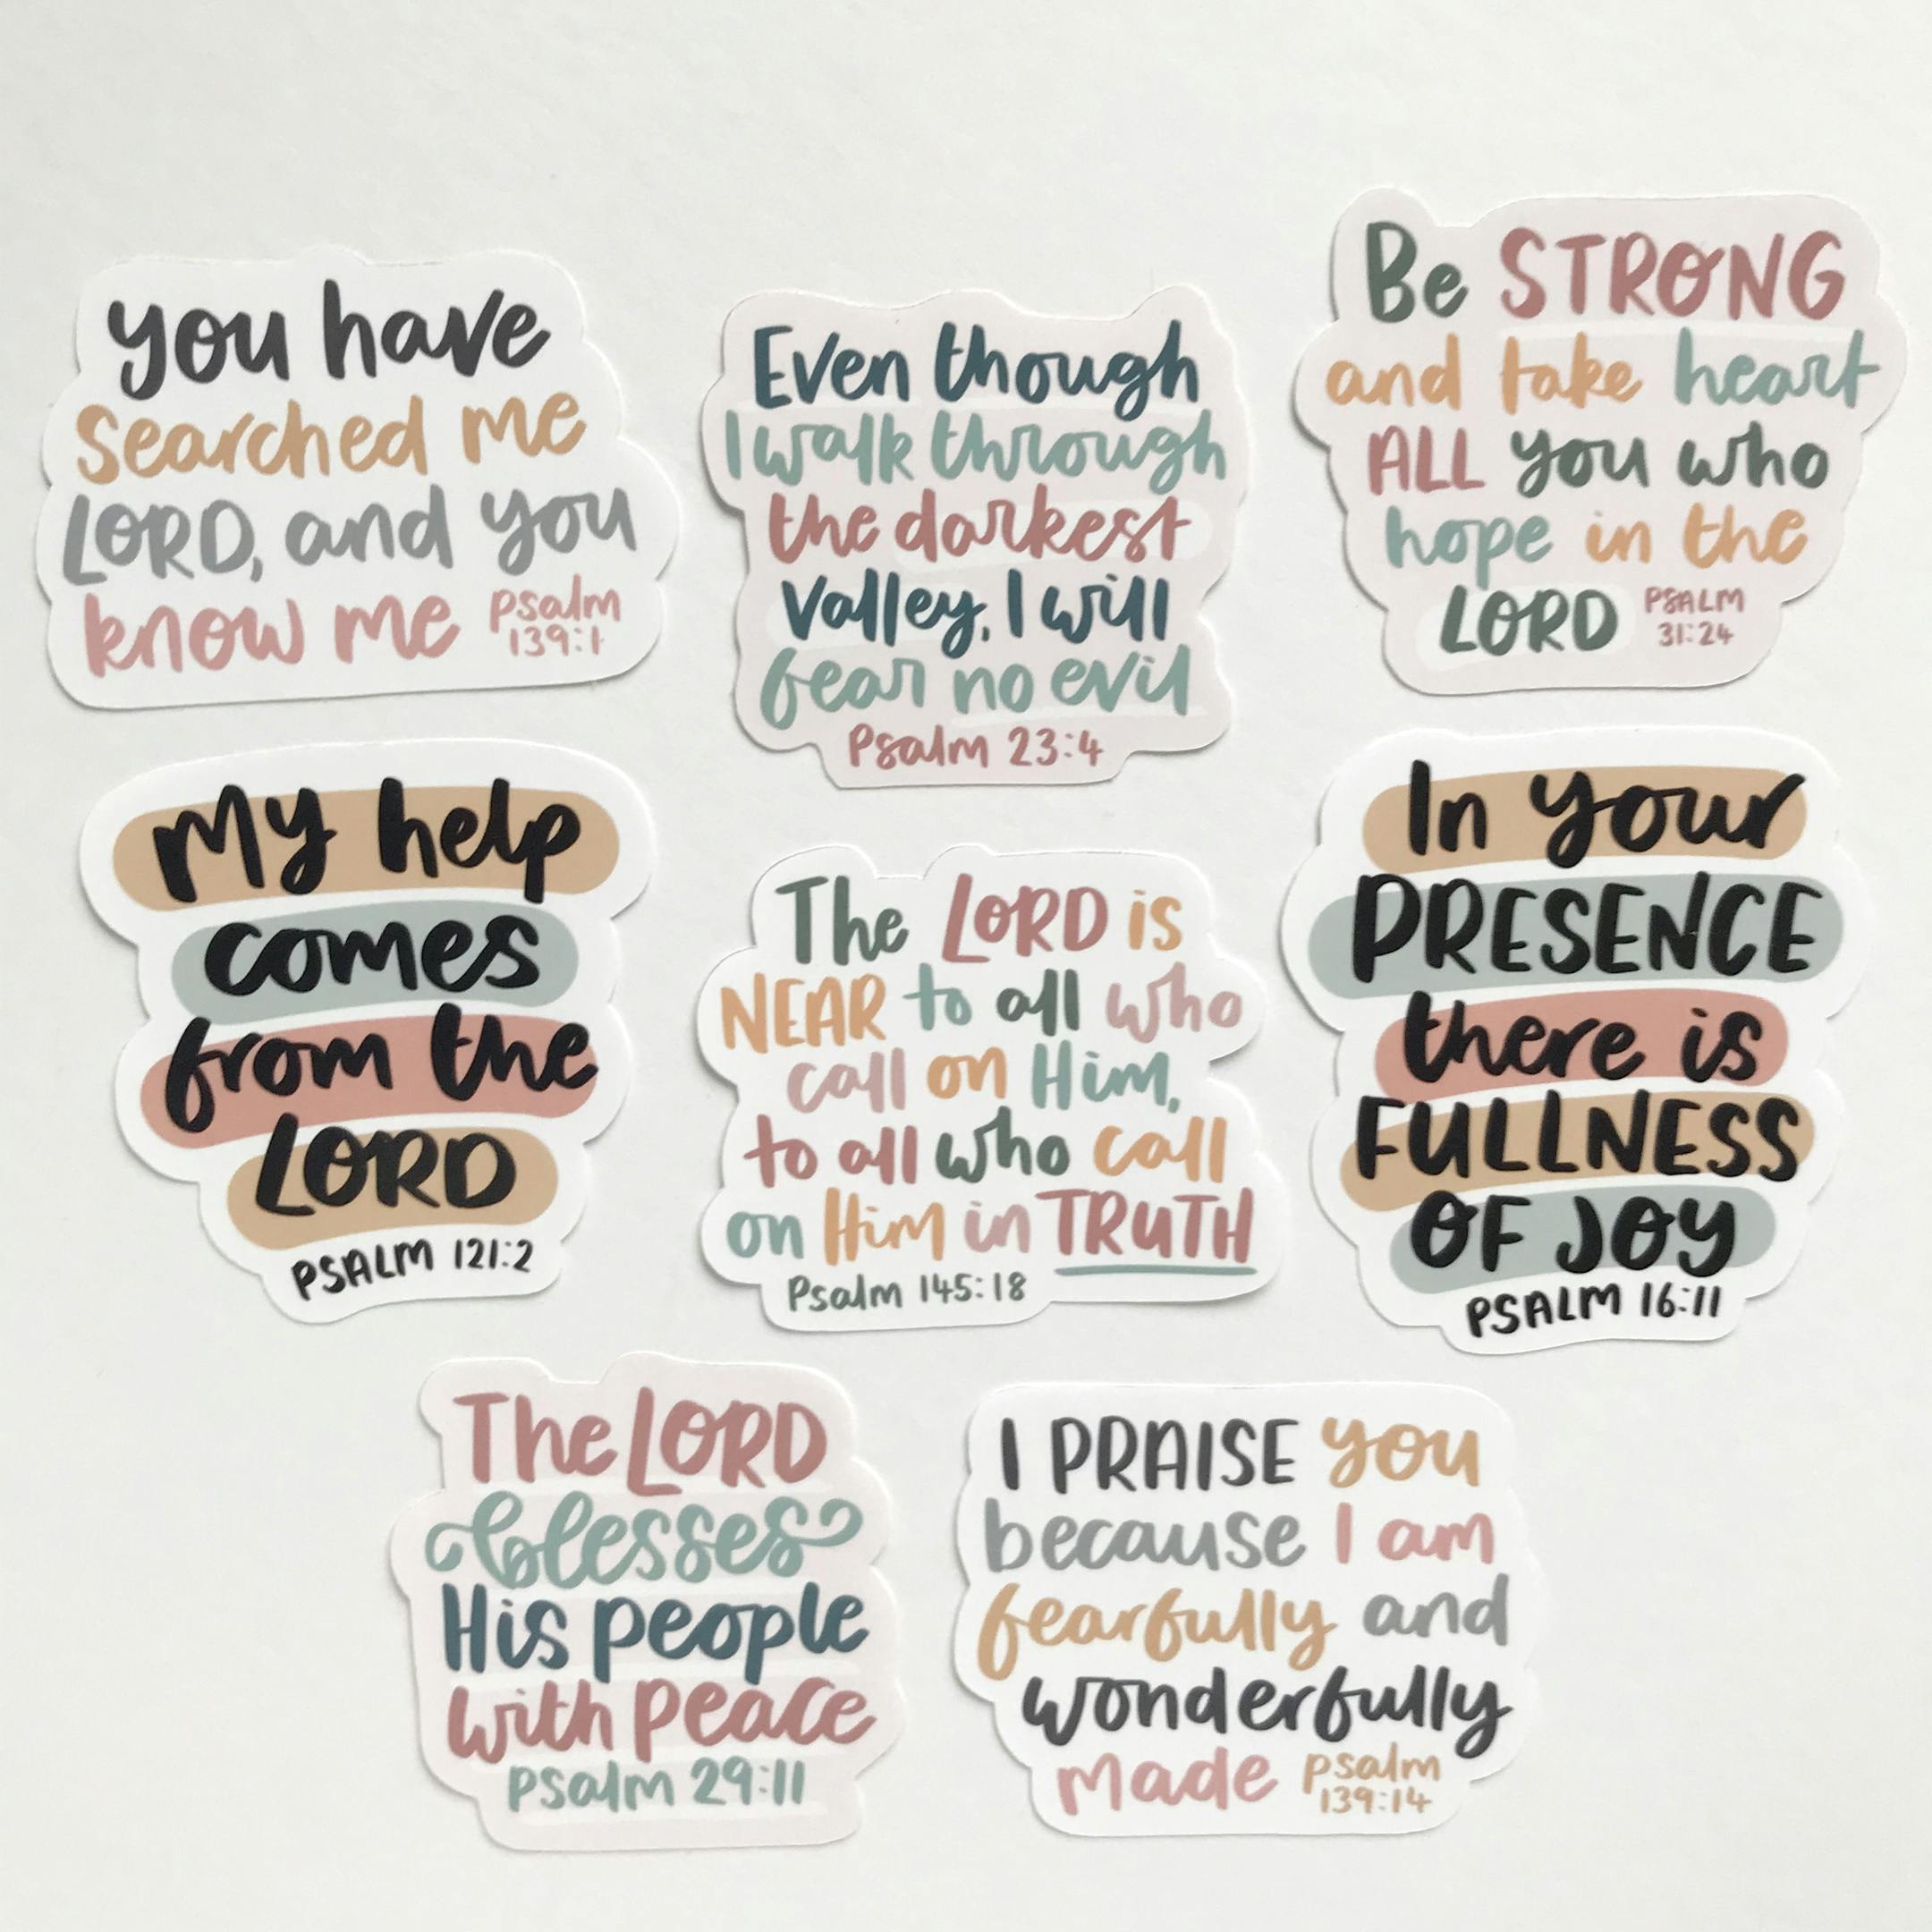 you have
searched me
LORD, and you
know me psalm
139:1
Even though
I walk through
the darkest
valley, I will
fear no evil
Psalm 23:4
Be STRONG
and take heart
ALL you who
hope in the
LORD PSALM
31:24
My help
comes
from the
LORD
PSALM 121:2
The LORD is
NEAR to all who
call on Him,
to all who call
on Him in TRUTH
Psalm 145:18
In your
PRESENCE
there is
FULLNESS
OF JOY
PSALM 16:11
The LORD
blesses
His people
with peace
Psalm 29:11
I PRAISE you
because I am
fearfully and
wonderfully
made psalm
139:14